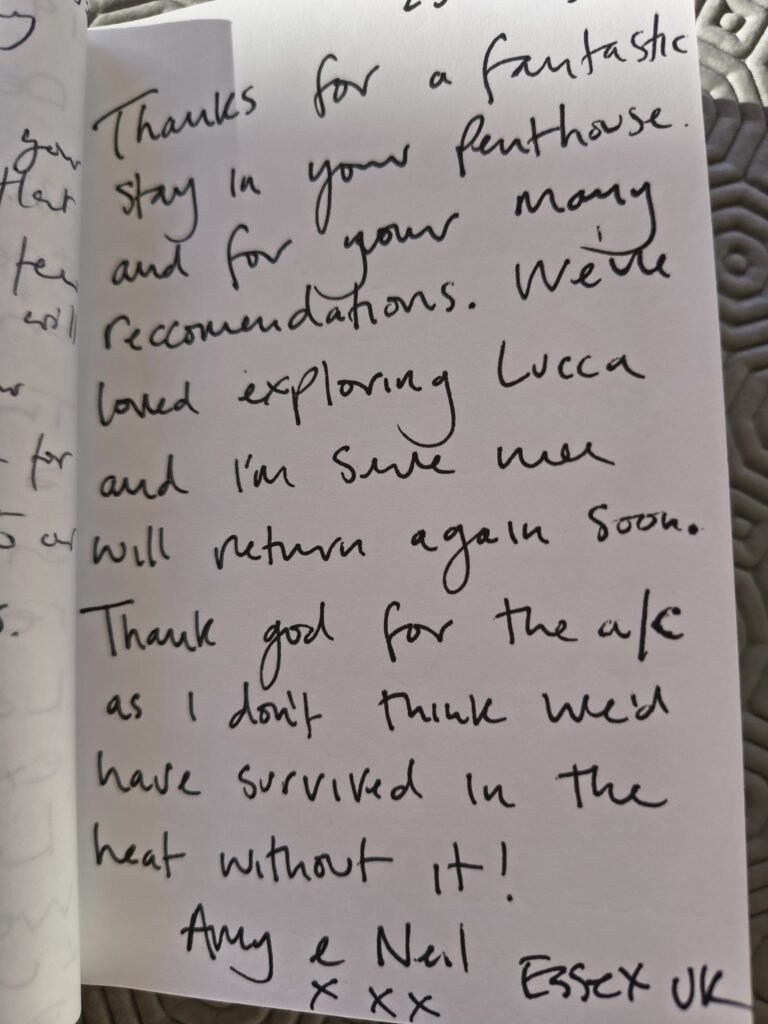 Thanks for a fantastic
stay in your Penthouse.
and for your many
reccomendations. We've
loved exploring Lucca
and I'm sure we
will return again soon.
Thank god for the a/c
as I don't think we'd
have survived in the
heat without it!
Amy e Neil
x x x
Essex UK
your
for
will